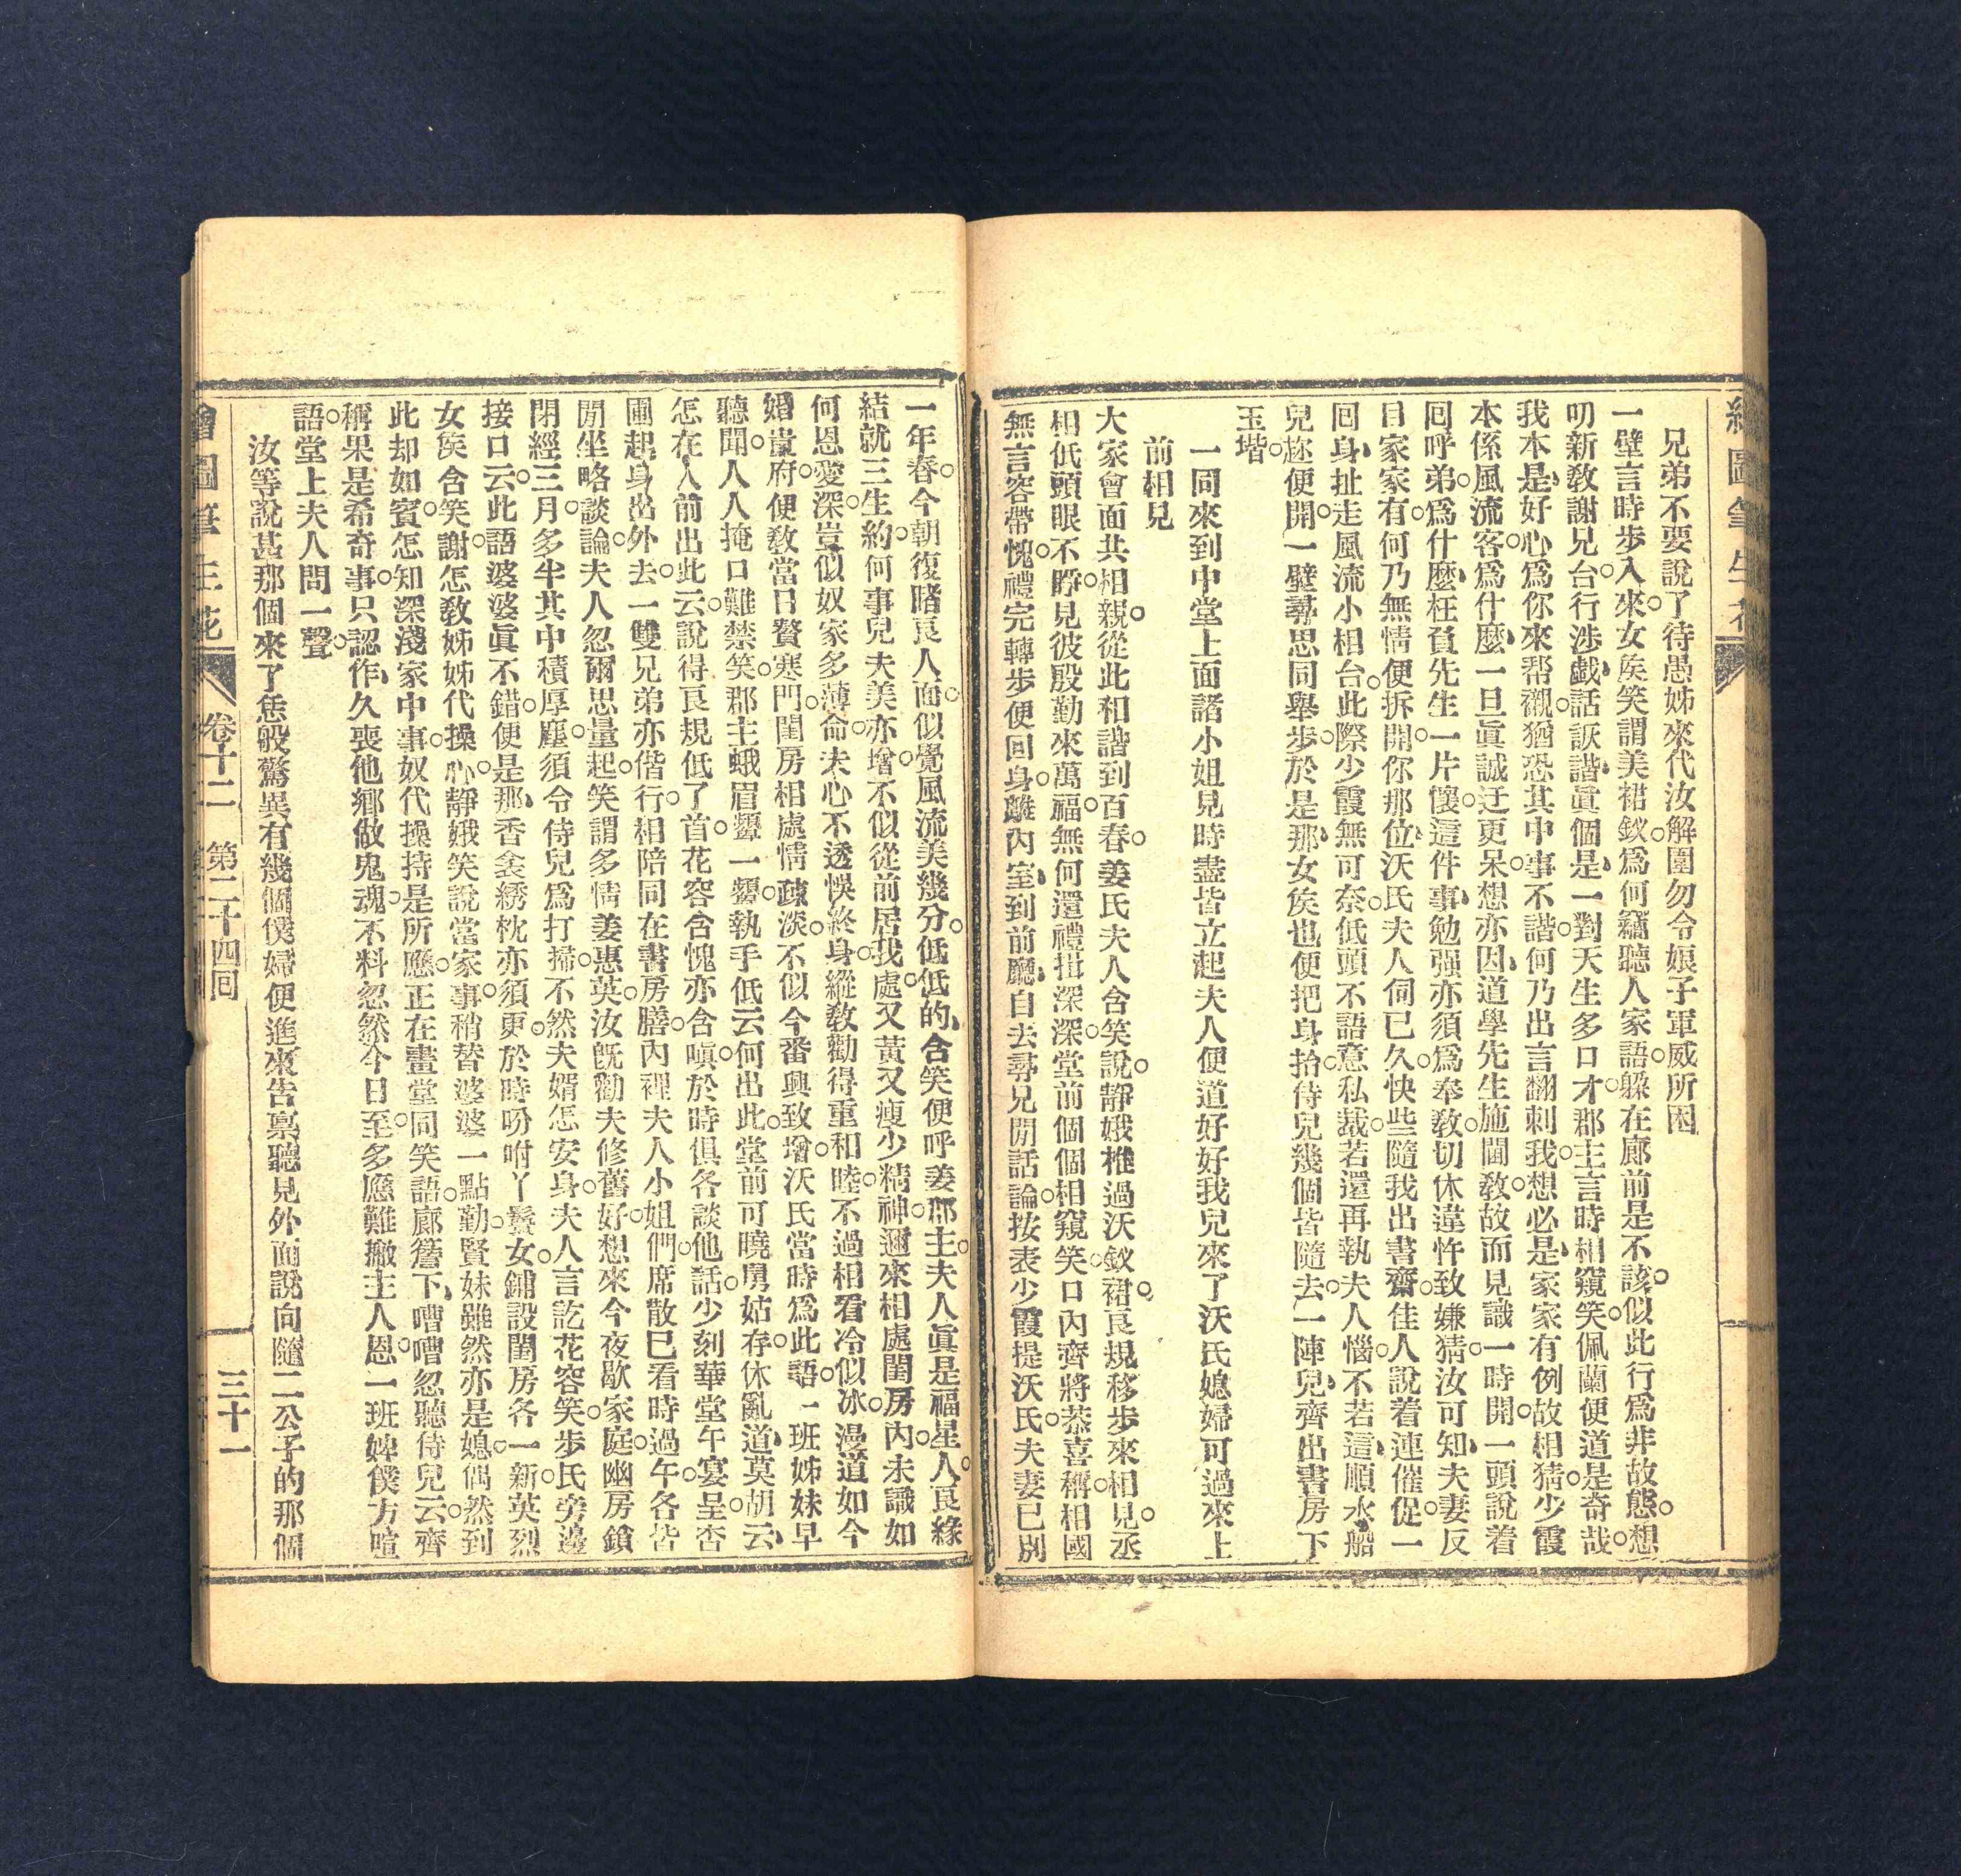 繪圖筆生花
兄弟不要說了待愚姊來代汝解圍勿令娘子軍威所困
一壁言時步入來女矦笑謂美裙釵爲何竊聽人家語躲在廊前是不該似此行爲非故態想
叨新敎謝兄台行涉戱話詼諧眞個是一對天生多口才郡主言時相窺笑佩蘭便道是奇哉
我本是好心爲你來帮襯猶恐其中事不諧何乃出言翻刺我想必是家家有例故相猜少霞
本係風流客爲什麼一旦眞誠迂更呆想亦因道學先生施閫敎故而見識一時開一頭說着
回呼弟爲什麼枉負先生一片懷這件事勉强亦須爲奉敎切休違忤致嫌猜汝可知夫妻反
目家家有何乃無情便拆開你那位沃氏夫人伺已久快些隨我出書齋佳人說着連催促一
回身扯走風流小相台此際少霞無可奈低頭不語意私裁若還再執夫人惱不若這順水船
兒趂便開一壁尋思同舉步於是那女矦也便把身抬侍兒幾個皆隨去一陣兒齊出書房下
玉堦
一同來到中堂上面諸小姐見時盡皆立起夫人便道好好我兒來了沃氏媳婦可過來上
前相見
大家會面共相親從此和諧到百春姜氏夫人含笑說靜娥推過沃釵裙良規移步來相見丞
相低頭眼不睜見彼殷勤來萬福無何還禮揖深深堂前個個相窺笑口內齊將恭喜稱相國
無言容帶愧禮完轉步便回身離內室到前廳自去尋兄閒話論按表少霞提沃氏夫妻已別
一年春今朝復睹良人面似覺風流美幾分低低的含笑便呼姜郡主夫人眞是福星人良緣
結就三生約何事兒夫美亦增不似從前居我處又黃又瘦少精神邇來相處閨房內未識如
何恩愛深豈似奴家多薄命夫心不透悞終身縱敎勸得重和睦不過相看冷似冰漫道如今
婚賫府便敎當日贅寒門閨房相處情疎淡不似今番興致增沃氏當時爲此語一班姊妹早
聽聞人人掩口難禁笑郡主蛾眉顰一顰執手低云何出此堂前可曉舅姑存休亂道莫胡云
怎在人前出此云說得良規低了首花容含愧亦含嗔於時俱各談他話少刻華堂午宴呈杏
圃起身出外去一雙兄弟亦偕行相陪同在書房膳內裡夫人小姐們席散已看時過午各皆
閒坐略談論夫人忽爾思量起笑謂多情姜惠英汝旣勸夫修舊好想來今夜歇家庭幽房鎖
閉經三月多半其中積厚塵須令侍兒爲打掃不然夫婿怎安身夫人言訖花容笑步氏旁邊
接口云此語婆婆眞不錯便是那香衾綉枕亦須更於時吩咐丫鬟女鋪設閨房各一新英烈
女矦含笑謝怎敎姊姊代操心靜娥笑說當家事稍替婆婆一點勤賢妹雖然亦是媳偶然到
此却如賓怎知深淺家中事奴代操持是所應正在畫堂同笑語廊簷下嘈嘈忽聽侍兒云齊
稱果是希奇事只認作久喪他鄉做鬼魂不料忽然今日至多應難撇主人恩一班婢僕方喧
語堂上夫人問一聲
汝等說甚那個來了恁般驚異有幾個僕婦便進來告禀聽見外面說向隨二公子的那個
繪圖筆生花
卷十二 第二十四回
三十一